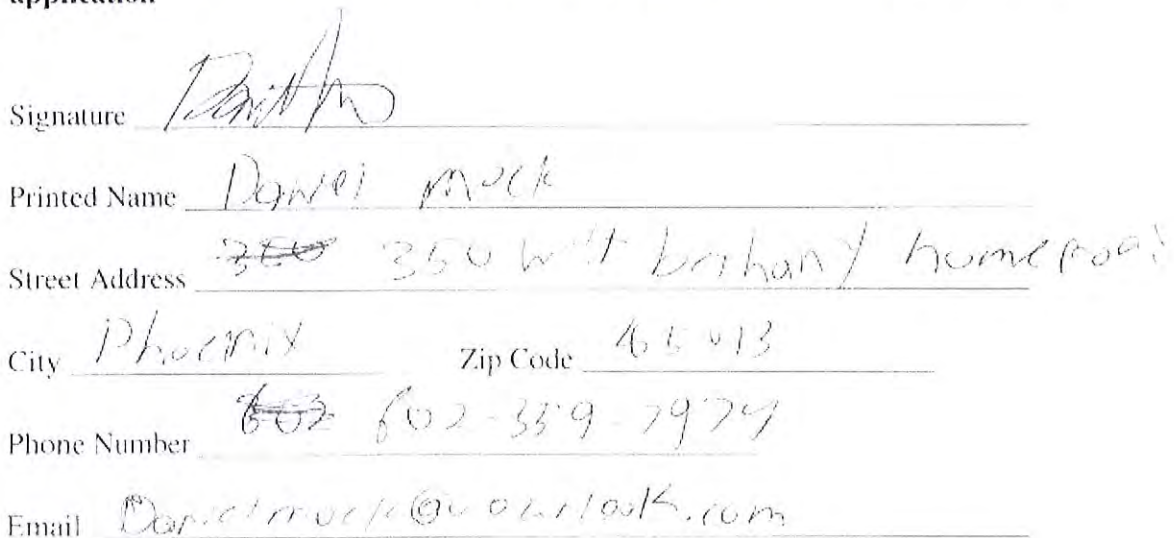 application
Signature
Printed Name Daniel muck
Street Address 350 350 west bethany home road
City Phoenix Zip Code 85013
Phone Number 602 602-359-7974
Email Danielmuck@outlook.com